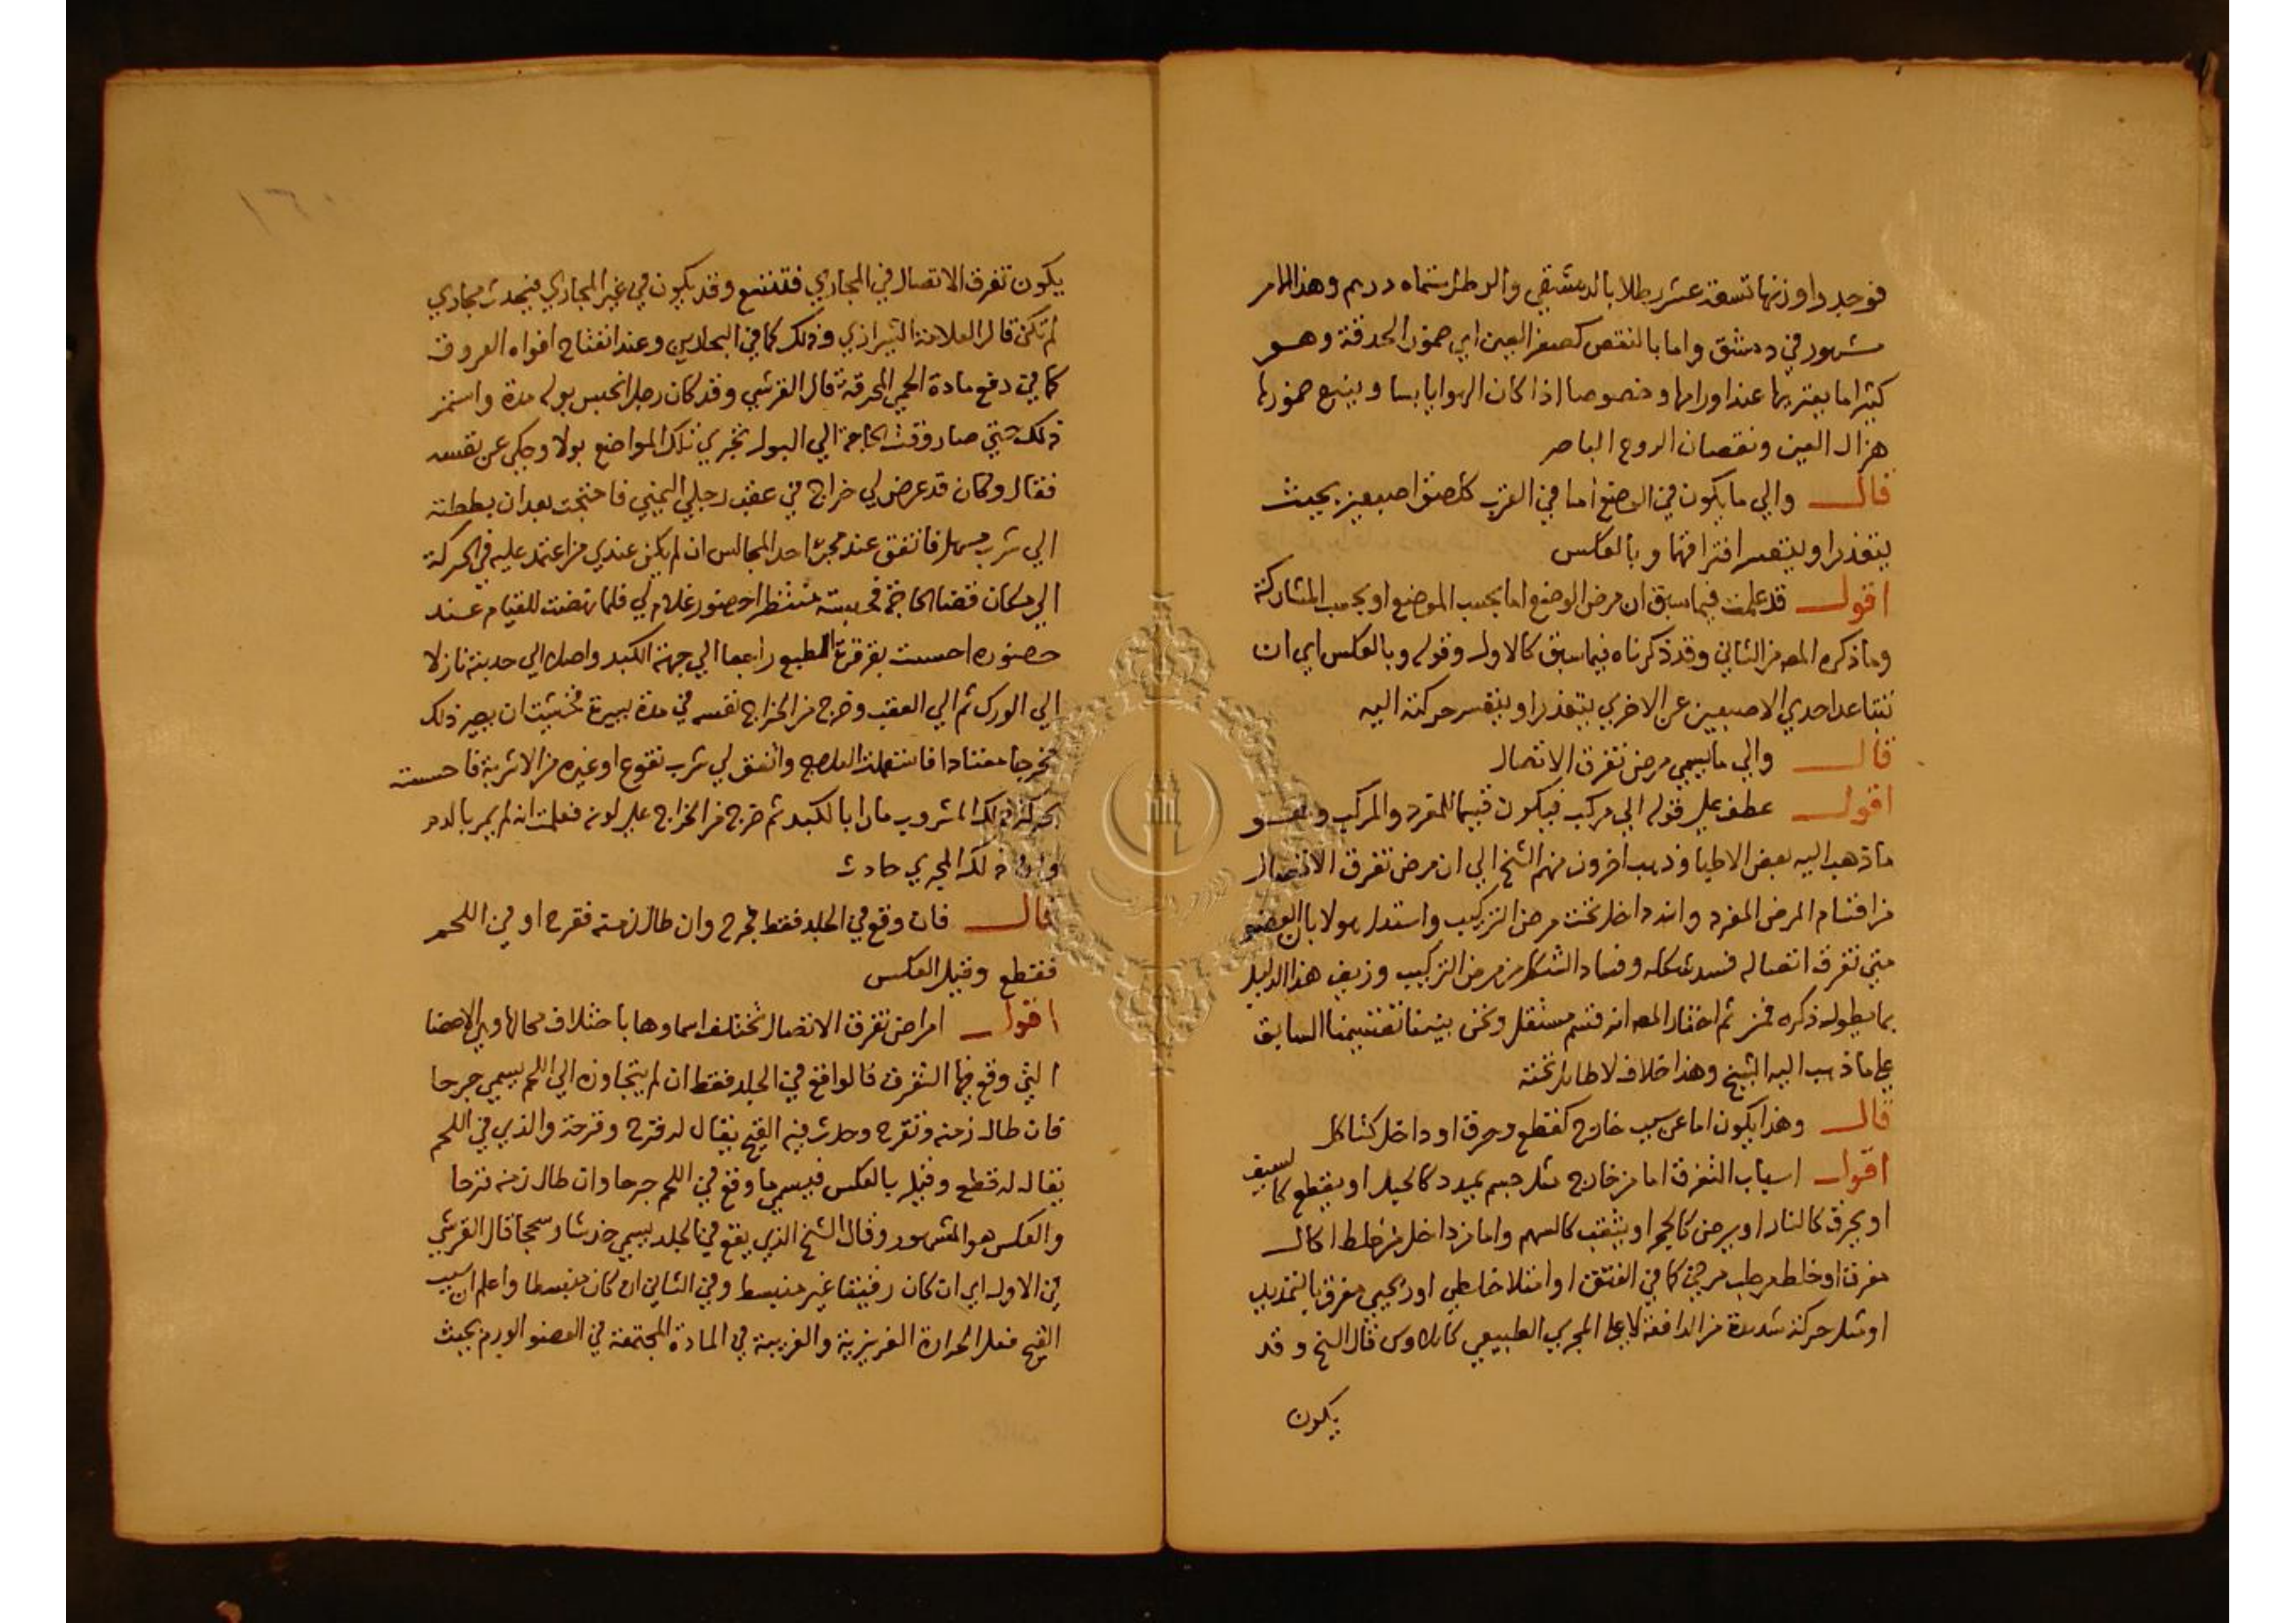 فوجدوا وزنها تسعة عشر رطلا بالدمشقي والرطل ستماه درهم وهذا الامر
مشهور في دمشق واما بالنقص كصغر العين اي ضمور الحدقة وهو
كثيرا ما يعتريها عند اورامها وخصوصا اذا كان الهوا يابسا ويتبع ضمورها
هزال العين ونقصان الروح الباصر
قال والي ما يكون في الوضع اما في القرب كلصق اصبعين بحيث
يتعذر او يتعسر افتراقهما وبالعكس
اقول قد علمت فيما سبق ان مرض الوضع اما بحسب الموضع او بحسب المشاركة
وما ذكره المص من الثاني وقد ذكرناه فيما سبق كالاول وقوله وبالعكس اي ان
تتباعد احدي الاصبعين عن الاخري يتعذر او يتعسر حركته اليه
قال والي ما يسمي مرض تفرق الاتصال
اقول عطف علي قوله الي مركب فيكون قسيما للمفرد والمركب وهو
ما ذهب اليه بعض الاطبا وذهب اخرون منهم الشيخ الي ان مرض تفرق الاتصال
من اقسام المرض المفرد وانه داخل تحت مرض التركيب واستدل هولا بان العضو
متي تفرق اتصاله فسد شكله وفساد الشكل من مرض التركيب وزيف هذا الدليل
بما يطول ذكره ثم اختار المص انه قسم مستقل ونحن بنينا تقسيمنا السابق
علي ما ذهب اليه الشيخ وهذا خلاف لا طايل تحته
قال وهذا يكون اما عن سبب خارج كقطع وحرق او داخل كتاكل
اقول اسباب التفرق اما من خارج مثل جسم يمدد كالحبل او يقطع كالسيف
او يحرق كالنار او يرض كالحجر او يثقب كالسهم واما من داخل من خلط اكال
مفرق او خلط مرطب مرخي كما في الفتق او امتلا خلطي او ريحي مفرق بالتمديد
او مثل حركة شديدة من الدافعة لا علي المجري الطبيعي كايلاوس قال الشيخ وقد
يكون
يكون تفرق الاتصال في المجاري فتتسع وقد يكون في غير المجاري فيحدث مجاري
لم تكن قال العلامة الشيرازي وذلك كما في البحارين وعند انفتاح افواه العروق
كما في دفع مادة الحمي المحرقة قال القرشي وقد كان رجل انحبس بوله مدة واستمر
ذلك حتي صار وقت الحاجة الي البول تجري تلك المواضع بولا وحكي عن نفسه
فقال وكان قد عرض لي خراج في عقب رجلي اليمني فاحتجت بعد ان بططته
الي شرب مسهل فاتفق عند مجئ احد المجالس ان لم يكن عندي من اعتمد عليه في الحركة
الي مكان قضا الحاجة منتظرا حضور غلام لي فلما نهضت للقيام عند
حضوره احسست بقرقرة راجعا الي جهة الكبد واصل الي حدبته نازلا
الي الورك ثم الي العقب وخرج من الخراج نفسه في مدة يسيرة فخشيت ان يصير ذلك
مخرجا معتادا واتفق لي شرب نقوع او غيره من الاشربة فاحسست
بحركة ذلك المشروب مارا بالكبد ثم خرج من الخراج علي لونه فعلمت انه لم يمر بالدم
وان ذلك المجري حادث
قال فان وقع في الجلد فقط فجرح وان طال زمنه فقرح او في اللحم
فقطع وقيل العكس
اقول امراض تفرق الاتصال تختلف اسماوها باختلاف محالها وهي الاعضا
التي وقع فيها التفرق فالواقع في الجلد فقط ان لم يتجاوزه الي اللحم يسمي جرحا
فان طال زمنه وتقرح وحدث فيه القيح يقال له قرح وقرحة والذي في اللحم
يقال له قطع وقيل بالعكس فيسمي ما وقع في اللحم جرحا وان طال زمنه قرحا
والعكس هو المشهور وقال الشيخ الذي يقع في الجلد يسمي خدشا وسحجا قال القرشي
في الاول اي ان كان رقيقا غير منبسط وفي الثاني ان كان منبسطا واعلم ان سبب
القيح فعل الحرارة الغريزية والغريبة في المادة المجتمعة في العضو الورم بحيث